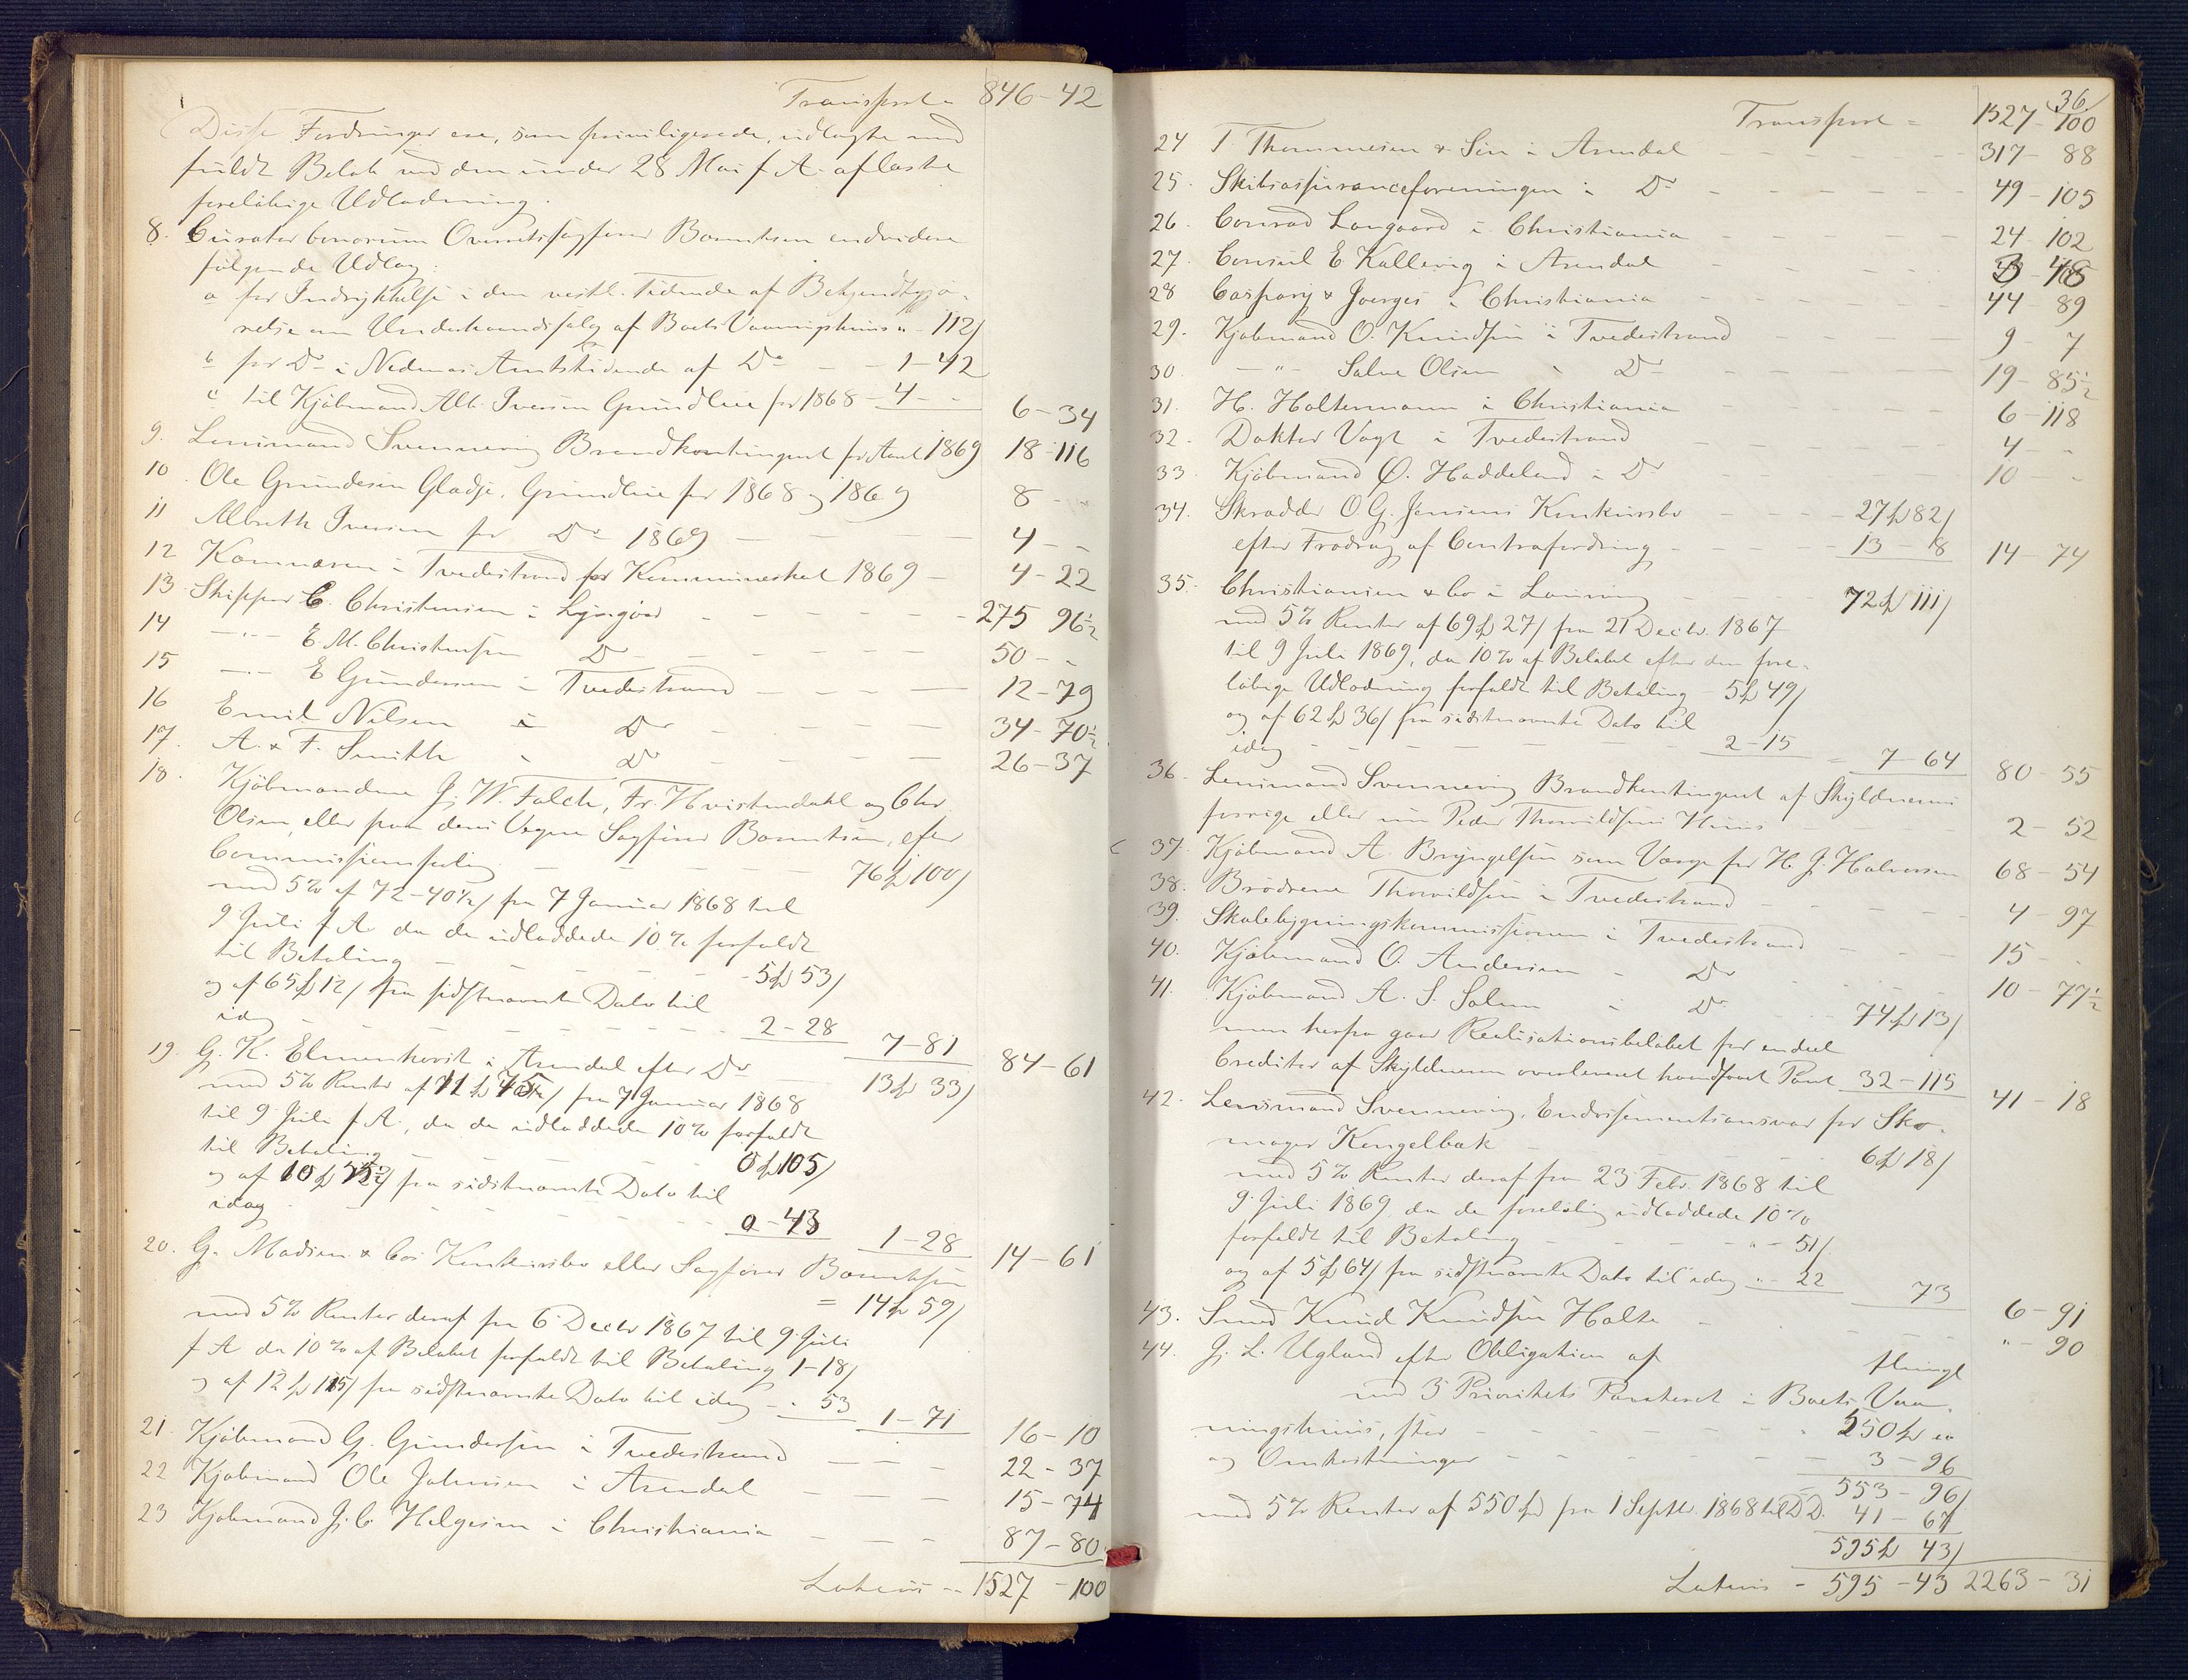 Transport = 846-42
Disse Fordringer ere, som priviligerede, udlagte med
fuldt Beløb ved den under 28 Mai f A. afsluttede
foreløbige Udlodning.
8. Curator bonorum Overretssagfører Bomntsen endvidere
følgende Udlæg:
a for Indrykkelse i den vestl. Tidende af Bekjendtgjø-
relse om Underhaandssalg af Boets Vaaningshuus " - 112/
b for Do i Nedenæs Amtstidende af Do - - 1-42
c til Kjøbmand Alb. Iversen Grundleie for 1868 - 4 - - 6-34
9. Lensmand Svenneving Brandkontingent for Aaret 1869 18-116
10. Ole Gundersen Gladsø, Grundleie for 1868 og 1869 8 - -
11 Albreth Iversen for Do 1869 4 - -
12 Kæmneren i Tvedestrand for Kommuneskat 1869 - 4-22
13 Skipper C. Christensen i Lyngør - 275 96½
14 - " - E. M. Christensen Do 50 - -
15 - " - E Gundersen i Tvedestrand 12-79
16 Emil Nilsen i Do 34-70½
17. A. & F. Smith " Do 26-37
18. Kjøbmændene J. W. Falck, Fr. Hvistendahl og Chr.
Olsen, eller paa deres Vegne Sagfører Bomntsen, efter
Commissionsforlig 76 ₰ 100/
med 5% af 72-40½/ fra 7 Januar 1868 til
9 Juli f A. da de udloddede 10% forfaldt
til Betaling - 5 ₰ 53/
og af 65 ₰ 12/ fra sidstnævnte Dato til
idag 2-28 7-81 84-61
19. G. K. Elmenhorst i Arendal efter Do 13 ₰ 33/
med 5% Renter af / fra 7 Januar 1868
til 9 Juli f A., da de udloddede 10% forfaldt
til Betaling 0 ₰ 105/
og af 10 ₰ / fra sidstnævnte Dato til
idag 0-43 1-28 14-61
20. G. Madsen & Co's Konkursbo eller Sagfører Bomntsen
= 14 ₰ 59/
med 5% Renter deraf fra 6 Decbr 1867 til 9 Juli
f A da 10% af Beløbet forfaldt til Betaling 1-18/
og af 12 ₰ 115/ fra sidstnævnte Dato til idag - " 53 1-71 16-10
21. Kjøbmand G. Gundersen i Tvedestrand 22-37
22 Kjøbmand Ole Johnsen i Arendal 15-74
23 Kjøbmand J. C. Helgesen i Christiania 87-80
Lateris = 1527-100
36.
Transport = 1527-100
24 T. Thommesen & Søn i Arendal 317-88
25. Skibsassuranceforeningen i Do 49-105
26. Conrad Langaard i Christiania 24-102
27. Consul E Kallevig i Arendal 3-48
28 Caspary & Joerges i Christiania 44-89
29. Kjøbmand O. Knudsen i Tvedestrand 9-7
30. - " - Salve Olsen " Do 19-85½
31. H. Holtermann i Christiania 6-118
32. Doktor Vogt i Tvedestrand 4 - -
33. Kjøbmand O. Haddeland i Do 10 - -
34. Skrædder O G. Jensens Konkursbo 27 ₰ 82/
efter Fradrag af Contrafordring 13-8 14-74
35. Christiansen & Co i Lauring 72 ₰ 111/
med 5% Renter af 69 ₰ 27/ fra 21 Decbr. 1867
til 9 Juli 1869, da 10% af Beløbet efter den fore-
løbige Udlodning forfaldt til Betaling 5 ₰ 49/
og af 62 ₰ 36/ fra sidstnævnte Dato til
idag 2-15 = 7-64 80-55
36. Lensmand Svenneving Brandkontingent af Skyldnerens
forrige eller nu Peder Thorvildsens Huus 2-52
37. Kjøbmand A. Bryngelsen som Værge for H. J. Halvorsen 68-54
38. Brødrene Thorvildsen i Tvedestrand 4-97
39. Skolebygningskommissionen i Tvedestrand 15 - -
40. Kjøbmand O. Andersen - Do 10-77½
41. Kjøbmand A. S. Solum i Do 74 ₰ 13/
men herfra gaar Realisationsbeløbet for endeel
Creditor af Skyldneren overleveret haandfaaet Pant 32-115 41-18
42. Lensmand Svenneving, Endossementsansvar for Sko-
mager Kengelbak 6 ₰ 18/
med 5% Renter deraf fra 23 Febr. 1868 til
9 Juli 1869, da de foreløbig udloddede 10%
forfaldt til Betaling " - 51/
og af 5 ₰ 64/ fra sidstnævnte Dato til idag " - 22 73 6-91
43. Smed Knud Knudsen Holte " - 90
44. J. L. Ugland efter Obligation af
med 3 Prioritets Panteret i Boets Vaa-
ningshuus, stor 550 ₰ "
og Omkostninger 3-96
553-96/
med 5% Renter af 550 ₰ fra 1 Septbr. 1868 til D.D. 41-67
595 ₰ 43/
Lateris - 595-43 2263-31